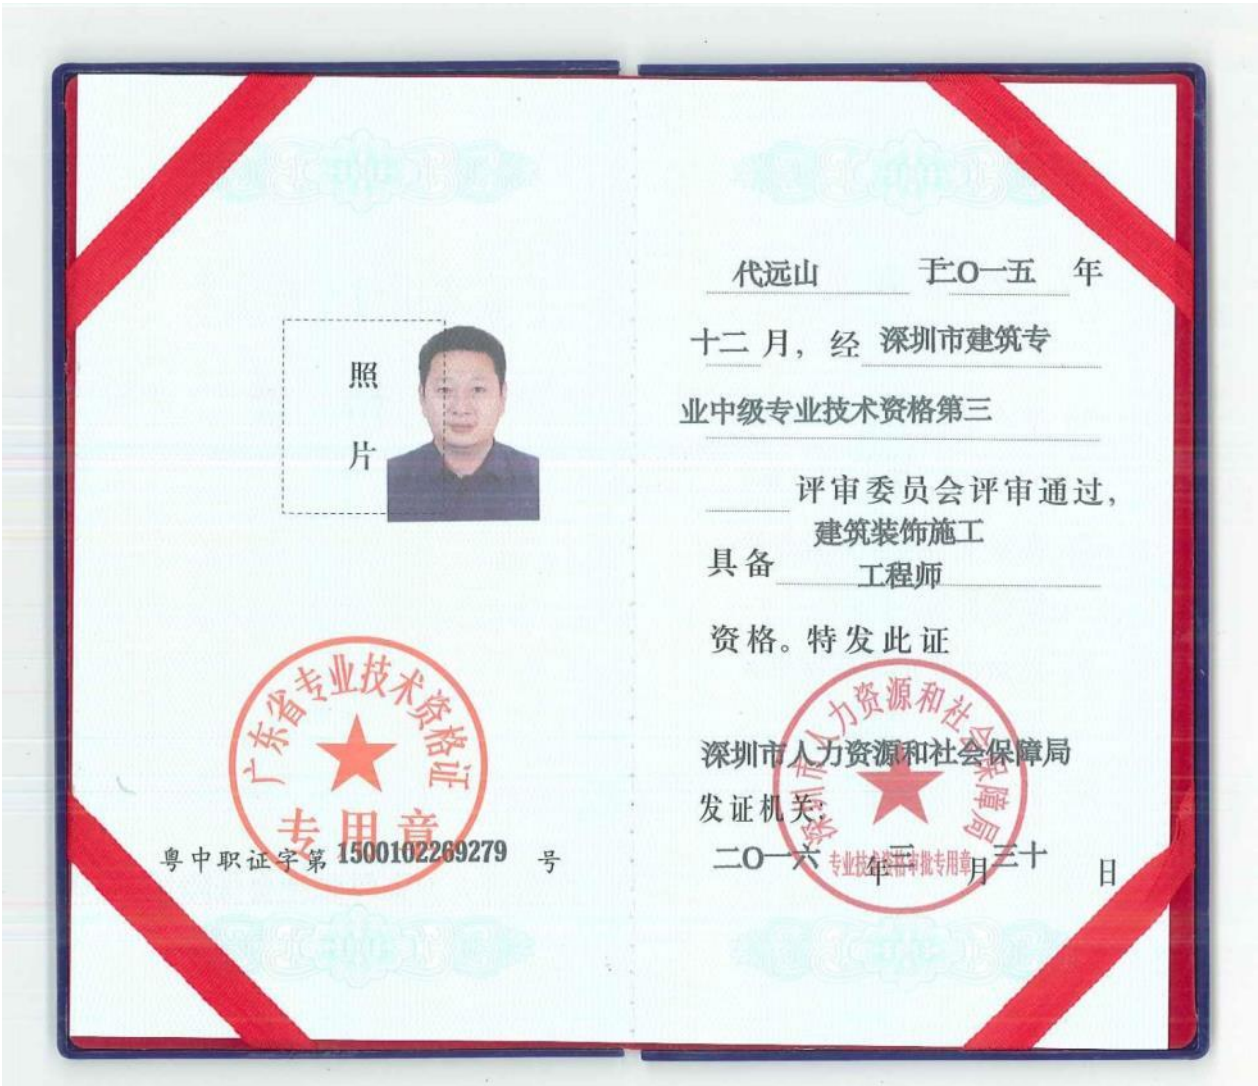 照
片
广东省专业技术资格证
专用章
粤中职证字第 1500102269279 号
代远山 于二0一五 年
十二 月，经 深圳市建筑专
业中级专业技术资格第三
评审委员会评审通过，
建筑装饰施工
具备 工程师
资格。特发此证
深圳市人力资源和社会保障局
深圳市人力资源和社会保障局
发证机关：
二0一六 年 三 月 三十 日
专业技术资格审批专用章